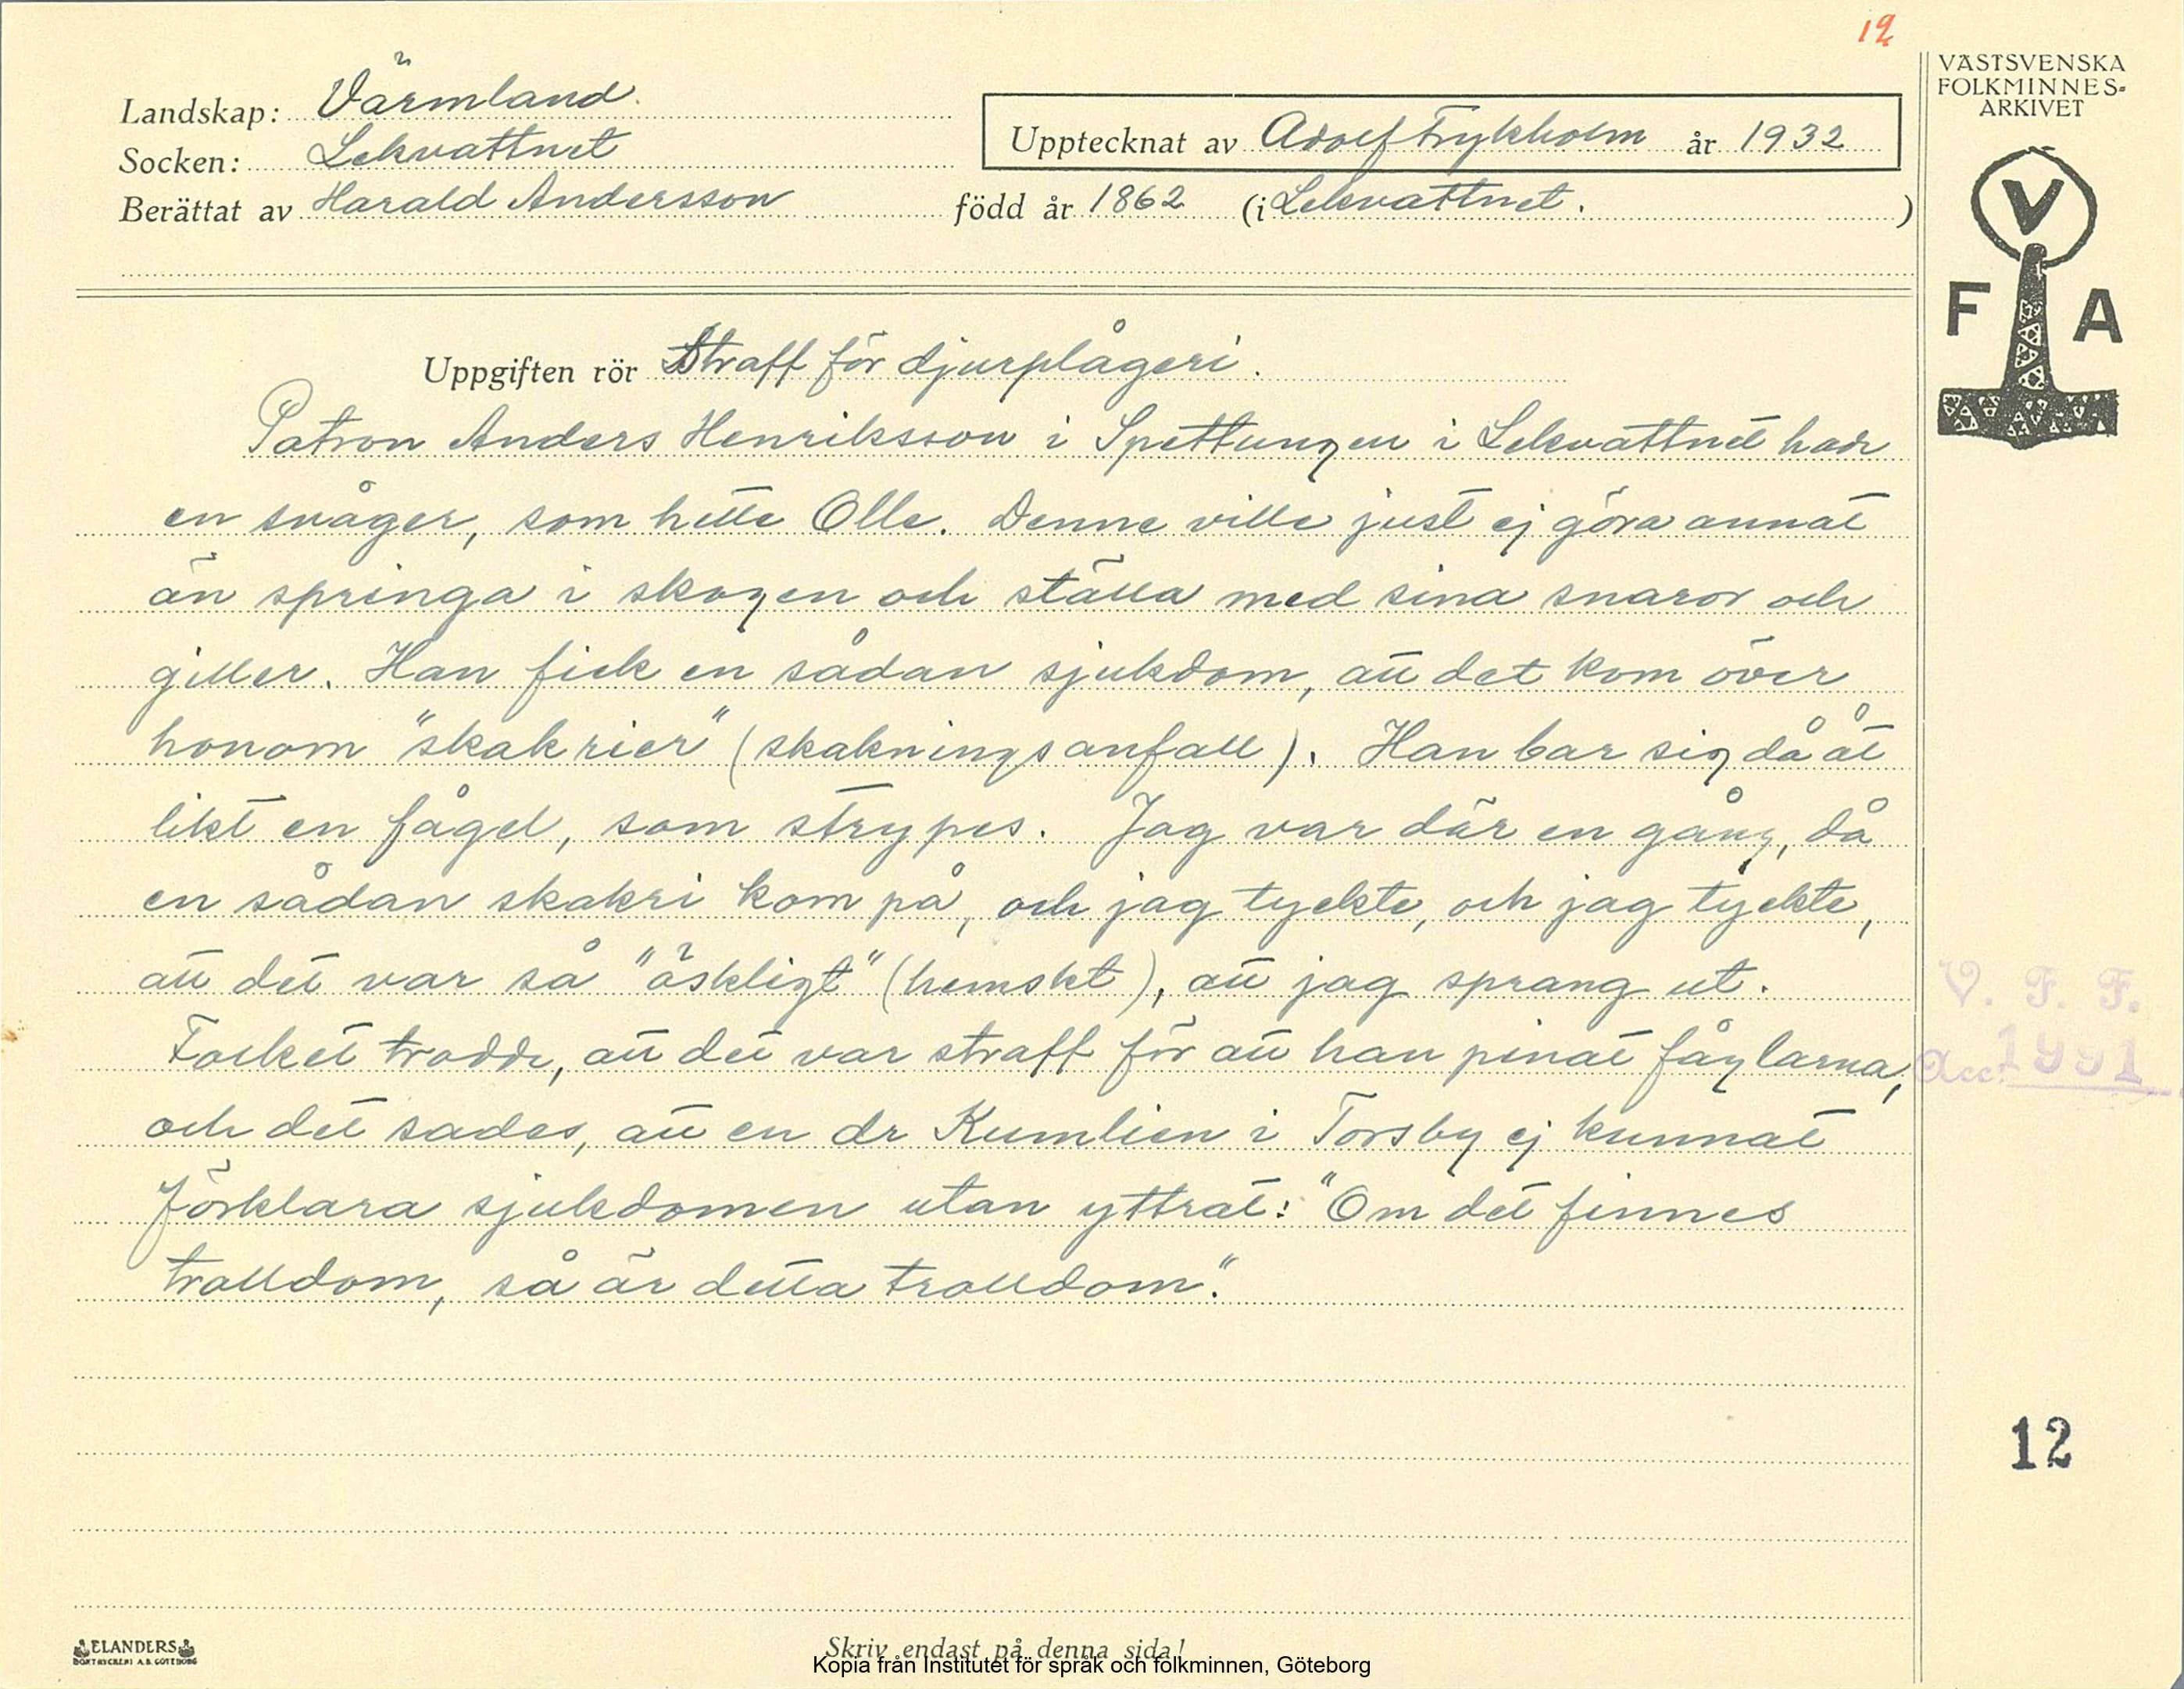 12
VÄSTSVENSKA
FOLKMINNES-
ARKIVET
V
F A
Landskap: Värmland.
Socken: Lekvattnet
Upptecknat av Adolf Frykholm år 1932
Berättat av Harald Andersson född år 1862 (i Lekvattnet. )
Uppgiften rör Straff för djurplågeri.
Patron Anders Henriksson i Spettungen i Lekvattnet hade
en svåger, som hette Olle. Denne ville just ej göra annat
än springa i skogen och ställa med sina snaror och
giller. Han fick en sådan sjukdom, att det kom över
honom "skakrier" (skakningsanfall). Han bar sig då åt
likt en fågel, som strypes. Jag var där en gång, då
en sådan skakri kom på, och jag tyckte, och jag tyckte,
att det var så "äskligt" (hemskt), att jag sprang ut.
Folket trodde, att det var straff för att han pinat fåglarna,
och det sades, att en dr Kumlien i Torsby ej kunnat
förklara sjukdomen utan yttrat: "Om det finnes
trolldom, så är detta trolldom".
V. F. F.
Acc. 1991
12
ELANDERS
BOKTRYCKERI A.B. GÖTEBORG
Skriv endast på denna sida!
Kopia från Institutet för språk och folkminnen, Göteborg